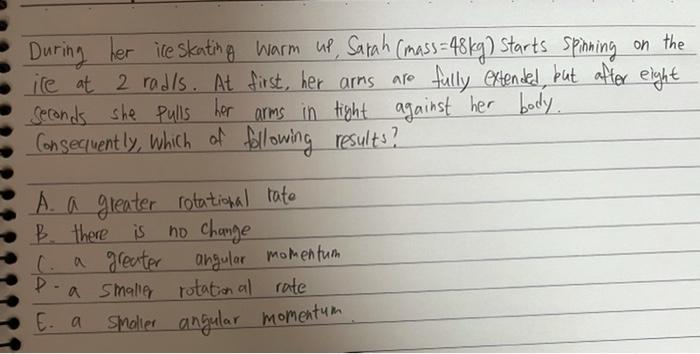 During her ice skating warm up, Sarah (mass=48kg) starts spinning on the
ice at 2 rad/s. At first, her arms are fully extended, but after eight
seconds she pulls her arms in tight against her body.
Consequently, which of following results?
A. a greater rotational rate
B. there is no change
C. a greater angular momentum
D. a smaller rotational rate
E. a smaller angular momentum.